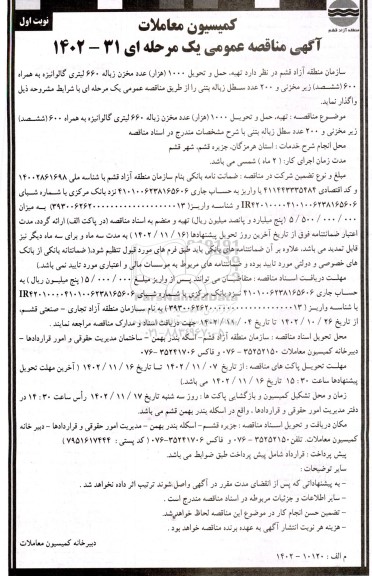 نوبت اول
منطقه آزاد قشم
کمیسیون معاملات
آگهی مناقصه عمومی یک مرحله ای ۳۱ – ۱۴۰۲
سازمان منطقه آزاد قشم در نظر دارد تهیه، حمل و تحویل ۱۰۰۰ (هزار) عدد مخزن زباله ۶۶۰ لیتری گالوانیزه به همراه
۶۰۰ (ششصد) زیر مخزنی و ۲۰۰ عدد سطل زباله بتنی را از طریق مناقصه عمومی یک مرحله ای با شرایط مشروحه ذیل
واگذار نماید.
موضوع مناقصه : تهیه، حمل و تحویل ۱۰۰۰ (هزار) عدد مخزن زباله ۶۶۰ لیتری گالوانیزه به همراه ۶۰۰ (ششصد)
زیر مخزنی و ۲۰۰ عدد سطل زباله بتنی با شرح مشخصات مندرج در اسناد مناقصه
محل انجام شرح خدمات : استان هرمزگان، جزیره قشم، شهر قشم
مدت زمان اجرای کار: ( ۲ ماه ) شمسی می باشد.
مبلغ و نوع تضمین شرکت در مناقصه : ضمانت نامه بانکی بنام سازمان منطقه آزاد قشم با شناسه ملی ۱۴۰۰۲۸۶۱۶۹۸
و کد اقتصادی ۴۱۱۴۴۳۳۳۵۲۸۴ یا واریز به حساب جاری ۴۱۰۱۰۰۶۲۳۸۱۶۵۶۰۶ نزد بانک مرکزی با شماره شبای
و شناسه واریز
به میزان
۵/۵۰۰/۰۰۰/۰۰۰ (پنج میلیارد و پانصد میلیون ریال) تهیه و منضم به اسناد مناقصه (در پاکت الف) ارائه گردد. مدت
اعتبار ضمانتنامه فوق از تاریخ آخرین روز تحویل پیشنهادها (۱۴۰۲/۱۱/۱۶) به مدت سه ماه و برای سه ماه دیگر نیز
قابل تمدید می باشد. علاوه بر آن ضمانتنامه های بانکی باید طبق فرم های مورد قبول تنظیم شود.( ضمانتنامه بانکی از بانک
های خصوصی و دولتی مورد تایید بوده و ضمانتنامه های مربوط به موسسات مالی و اعتباری مورد تایید نمی باشد.)
مهلت دریافت اسناد مناقصه : متقاضیان می توانند پس از واریز مبلغ ۵/۰۰۰/۰۰۰ (پنج میلیون ریال) به
حساب جاری ۴۱۰۱۰۰۶۲۳۸۱۶۵۶۰۶ نزد بانک مرکزی با شماره شبای
با شناسه واریز
به نام سازمان منطقه آزاد تجاری – صنعتی قشم،
از تاریخ ۱۴۰۲/۱۰/۲۶ تا تاریخ ۱۴۰۲/۱۱/۰۴ جهت دریافت اسناد و مدارک مناقصه مراجعه نمایند .
محل تحویل اسناد مناقصه : سازمان منطقه آزاد قشم - اسکله بندر بهمن - ساختمان مدیریت حقوقی و امور قراردادها -
دبیرخانه کمیسیون معاملات ۳۵۲۵۲۱۵۰ -۰۷۶ و فاکس ۳۵۲۴۱۷۰۶-۰۷۶
مهلت تحویل پاکت های مناقصه : از تاریخ ۱۴۰۲/۱۱/۰۷ تا تاریخ ۱۴۰۲/۱۱/۱۶ ( آخرین مهلت تحویل
پیشنهادها ساعت ۱۵:۳۰ تاریخ ۱۴۰۲/۱۱/۱۶ می باشد.)
زمان و محل تشکیل کمیسیون و بازگشایی پاکت ها : روز سه شنبه تاریخ ۱۴۰۲/۱۱/۱۷ رأس ساعت ۱۴:۳۰ در
دفتر مدیریت امور حقوقی و قراردادها ، واقع در اسکله بندر بهمن قشم می باشد.
مکان دریافت و تحویل اسناد مناقصه : جزیره قشم- اسکله بندر بهمن - مدیریت امور حقوقی و قراردادها - دبیر خانه
کمیسیون معاملات. تلفن ۳۵۲۵۲۱۵۰ - ۰۷۶ و فاکس ۳۵۲۴۱۷۰۶-۰۷۶ ( کد پستی : ۷۹۵۱۶۱۷۴۴۴ )
پیش پرداخت : قرارداد شامل پیش پرداخت طبق ضوابط می باشد.
سایر توضیحات :
- به پیشنهاداتی که پس از انقضای مدت مقرر در آگهی واصل شوند ترتیب اثر داده نخواهد شد .
- سایر اطلاعات و جزئیات مربوطه در اسناد مناقصه مندرج است .
- تضمین حسن انجام کار در موضوع این مناقصه لحاظ خواهد شد.
- هزینه هر نوبت انتشار آگهی به عهده برنده مناقصه خواهد بود .
دبیرخانه کمیسیون معاملات
م الف : ۱۰۱۲۰ - ۱۴۰۲